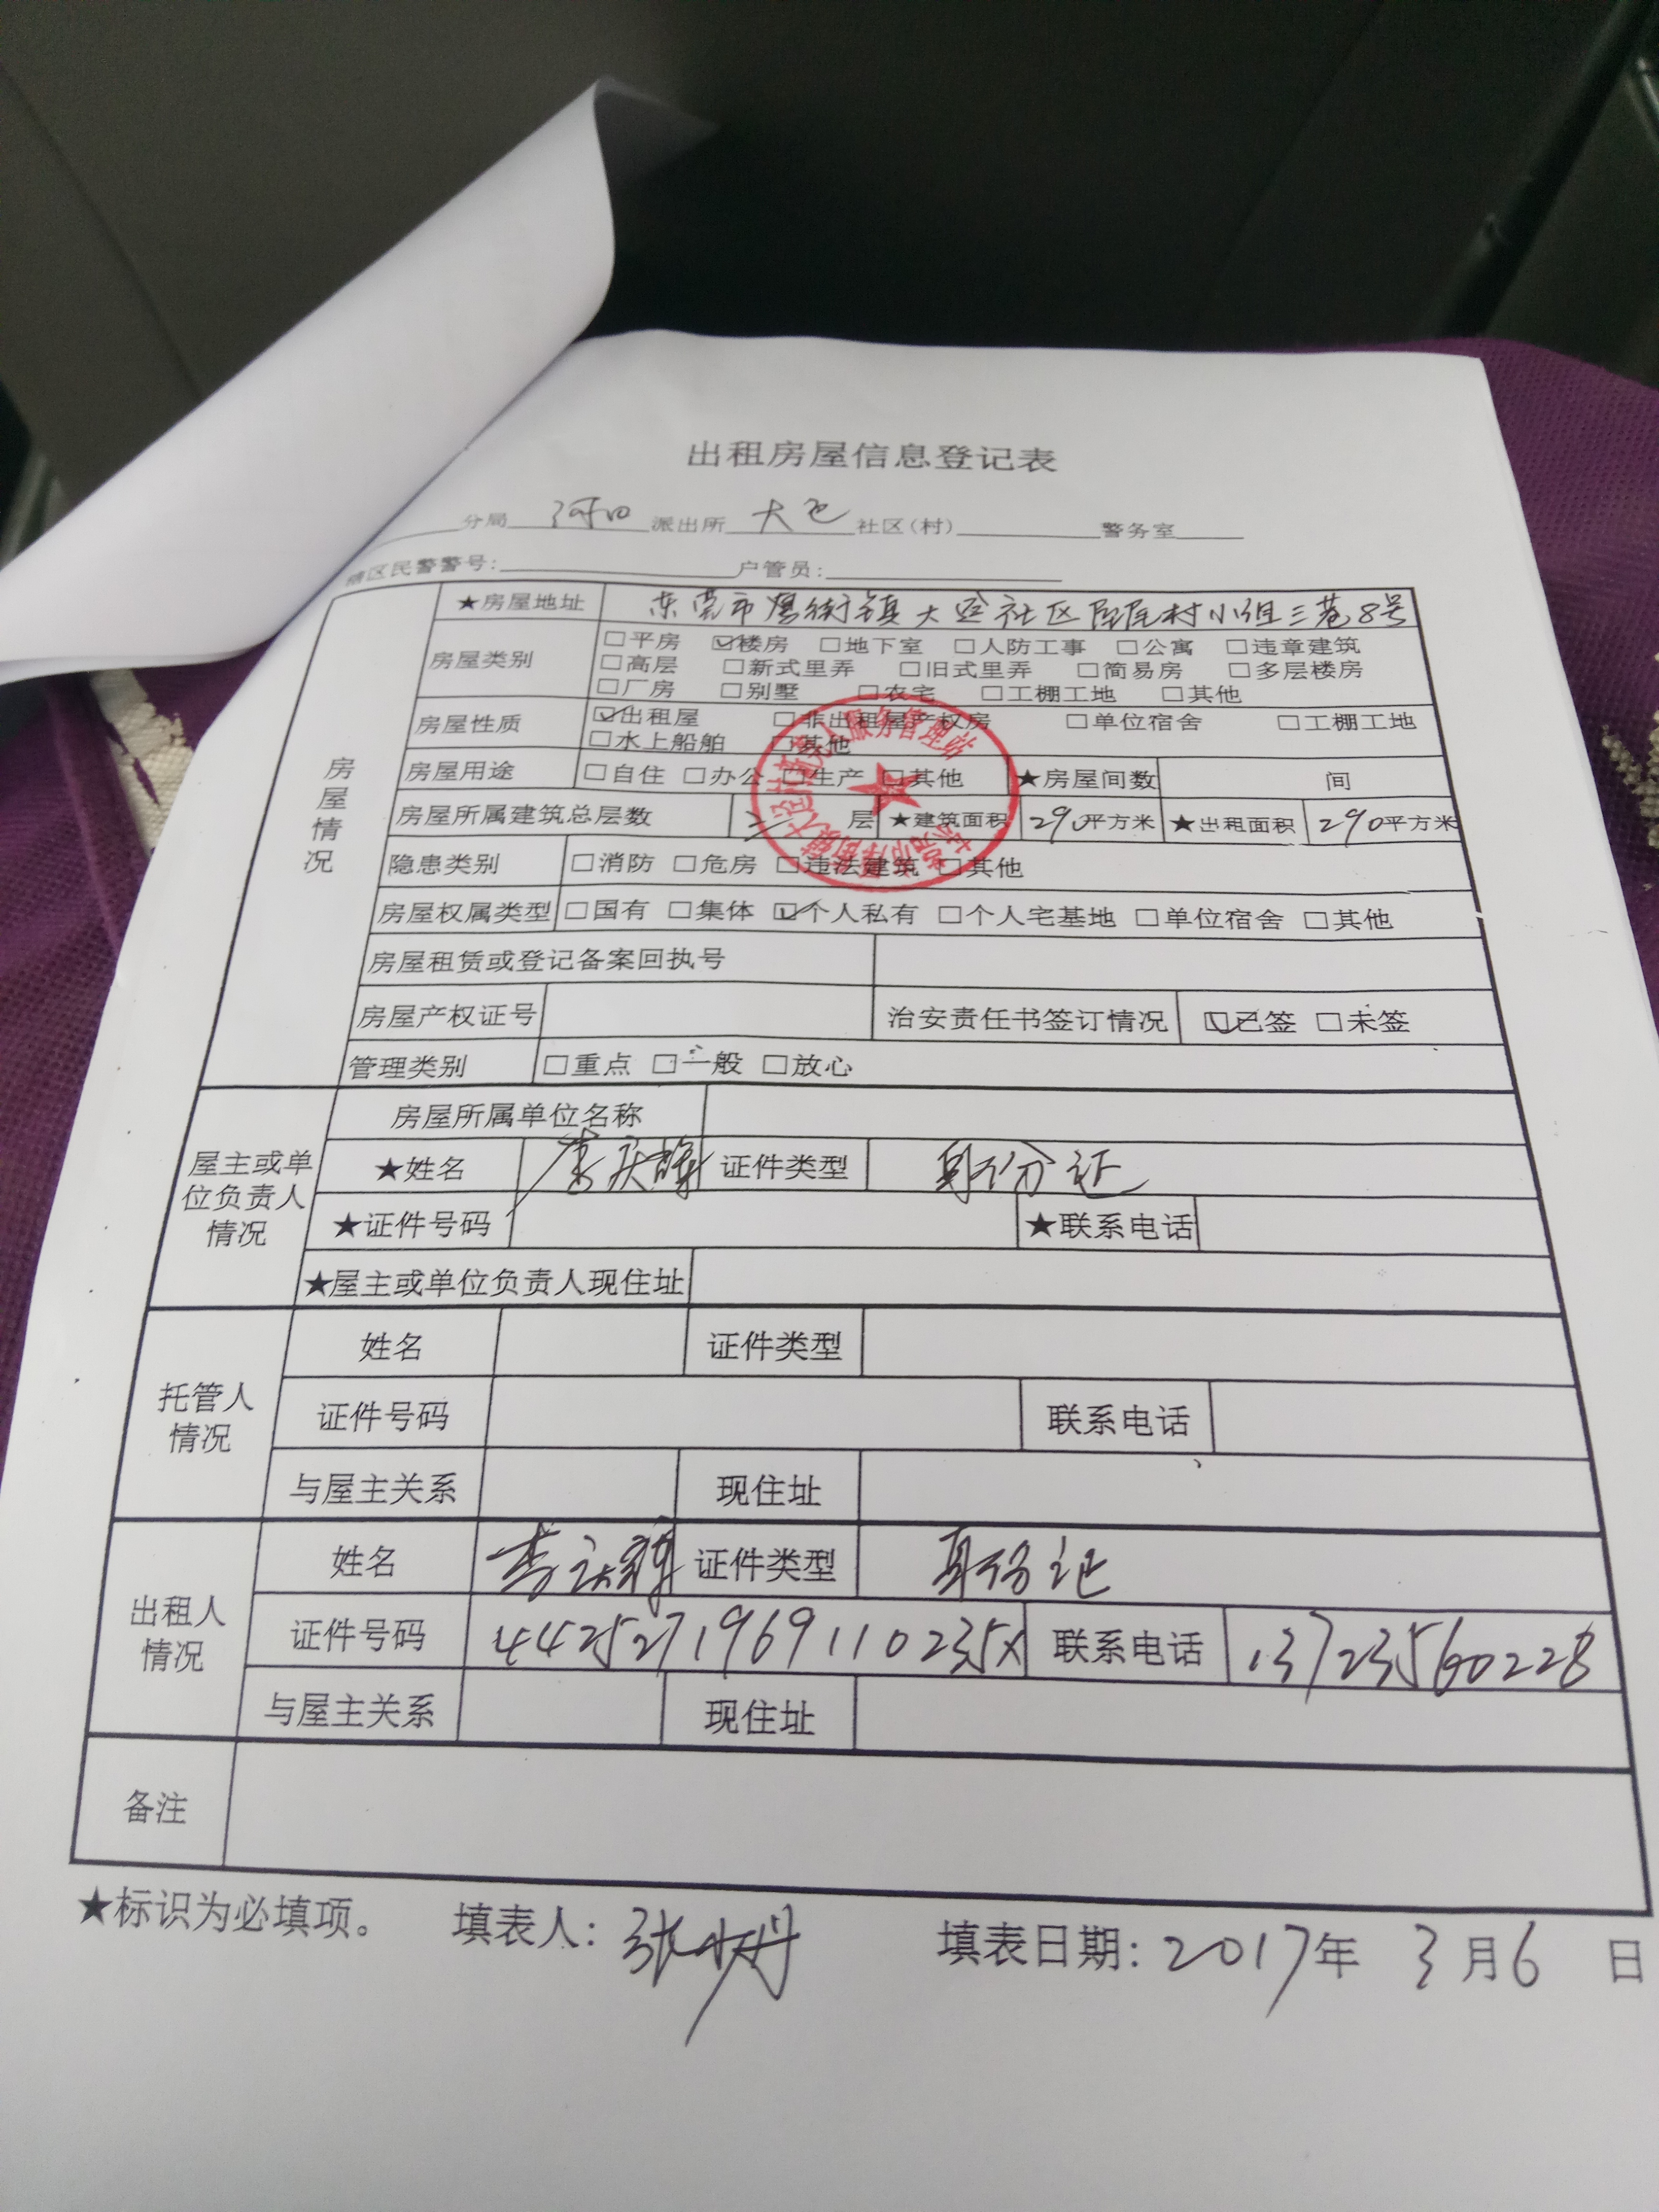 出租房屋信息登记表
分局 河田 派出所 大迳 社区(村) 警务室
辖区民警警号: 户管员:
房屋情况
★房屋地址 东莞市厚街镇大迳社区 尾村小组三巷8号
房屋类别 □平房 ☑楼房 □地下室 □人防工事 □公寓 □违章建筑
□高层 □新式里弄 □旧式里弄 □简易房 □多层楼房
□厂房 □别墅 □农宅 □工棚工地 □其他
房屋性质 ☑出租屋 □非出租屋产权房 □单位宿舍 □工棚工地
□水上船舶 □其他
房屋用途 □自住 □办公 □生产 □其他 ★房屋间数 间
房屋所属建筑总层数 层 ★建筑面积 290平方米 ★出租面积 290平方米
隐患类别 □消防 □危房 □违法建筑 □其他
房屋权属类型 □国有 □集体 ☑个人私有 □个人宅基地 □单位宿舍 □其他
房屋租赁或登记备案回执号
房屋产权证号 治安责任书签订情况 ☑已签 □未签
管理类别 □重点 □一般 □放心
屋主或单位负责人情况
房屋所属单位名称
★姓名 证件类型 身份证
★证件号码 ★联系电话
★屋主或单位负责人现住址
托管人情况
姓名 证件类型
证件号码 联系电话
与屋主关系 现住址
出租人情况
姓名 证件类型 身份证
证件号码 4425271969110235X 联系电话 13723560228
与屋主关系 现住址
备注
★标识为必填项。 填表人: 张 丹 填表日期: 2017年 3月6 日